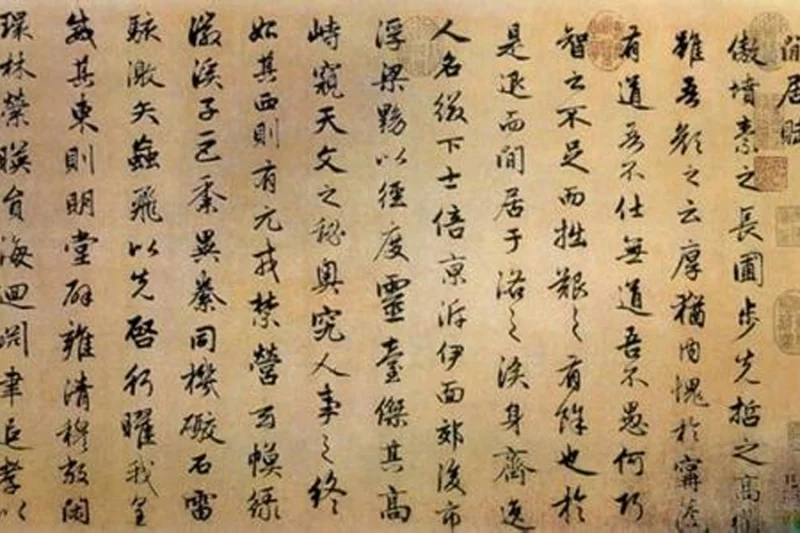 閒居賦
傲墳素之長圃步先哲之高衢
雖吾顏之云厚猶內愧於甯蘧
有道吾不仕無道吾不愚何巧
智之不足而拙艱之有餘也於
是退而閒居于洛之涘身齊逸
人名綴下士倍京泝伊面郊後市
浮梁黝以徑度靈臺傑其高
峙窺天文之秘奧究人事之終
始其西則有元戎禁營玄幙綠
徽溪子巨黍異絭同機礮石雷
駭激矢蝱飛以先啓行曜我皇
威其東則明堂辟雍清穆敞閑
環林縈暎員海迴渊聿追孝以